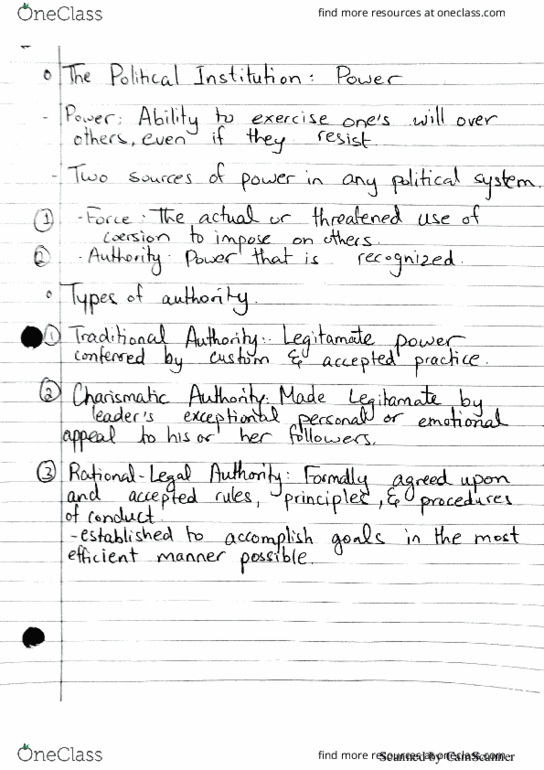 OneClass
find more resources at oneclass.com
The Politicał Institution: Power
- Power: Ability to exercise one's will over
others, even if they resist
- Two sources of power in any political system.
① - Force: The actual or threatened use of
coersion to impose on others.
② - Authority: Power that is recognized.
Types of authority.
① Traditional Authority: Legitamate power
conferred by custom & accepted practice.
② Charismatic Authority: Made Legitamate by
leader's exceptional personal or emotional
appeal to his or her followers.
③ Rational-Legal Authority: Formally agreed upon
and accepted rules, principles, & procedures
of conduct.
- established to accomplish goals in the most
efficient manner possible.
OneClass
find more resources at oneclass.com
Scanned by CamScanner